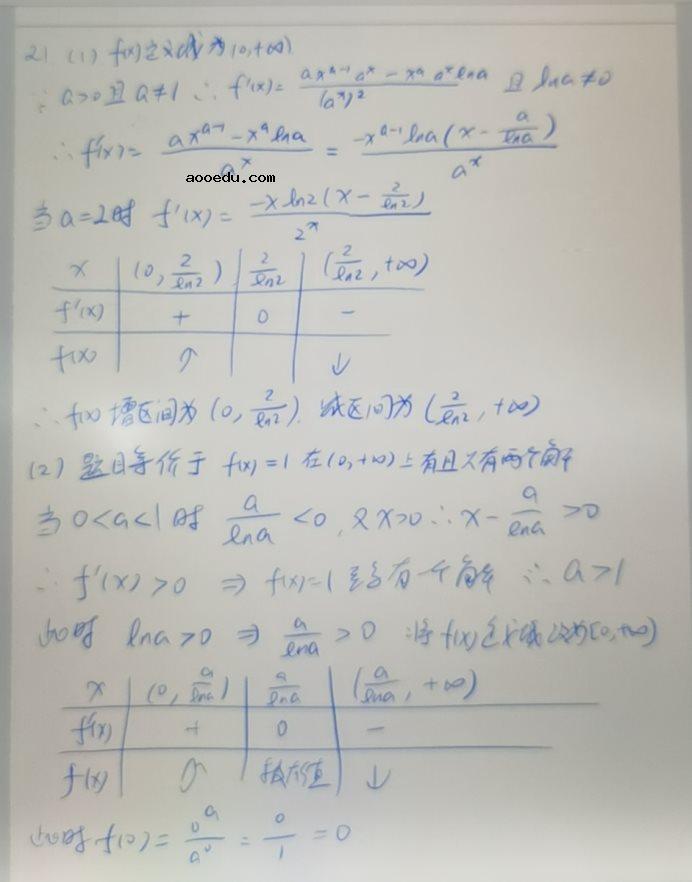 21 (1) f(x)定义域为(0,+∞)
∵ a>0且a≠1 ∴ f'(x)= (ax^(a-1) a^x - x^a a^x lna)/(a^x)^2 且 lna≠0
∴ f'(x)= (ax^(a-1) - x^a lna)/a^x = (-x^(a-1) lna (x - a/lna))/a^x
aooedu.com
当a=2时 f'(x)= (-x ln2 (x - 2/ln2))/2^x
x | (0, 2/ln2) | 2/ln2 | (2/ln2, +∞)
f'(x) | + | 0 | -
f(x) | ↗ | | ↓
∴ f(x)增区间为 (0, 2/ln2). 减区间为 (2/ln2, +∞)
(2) 题目等价于 f(x)=1 在(0,+∞)上有且只有两个解
当 0<a<1时 a/lna <0, 又x>0 ∴ x - a/lna >0
∴ f'(x)>0 ⇒ f(x)=1 至多有一个解 ∴ a>1
此时 lna>0 ⇒ a/lna >0 将f(x)定义域改为[0,+∞)
x | (0, a/lna) | a/lna | (a/lna, +∞)
f'(x) | + | 0 | -
f(x) | ↗ | 极大值 | ↓
此时 f(0)= 0^a/a^0 = 0/1 =0